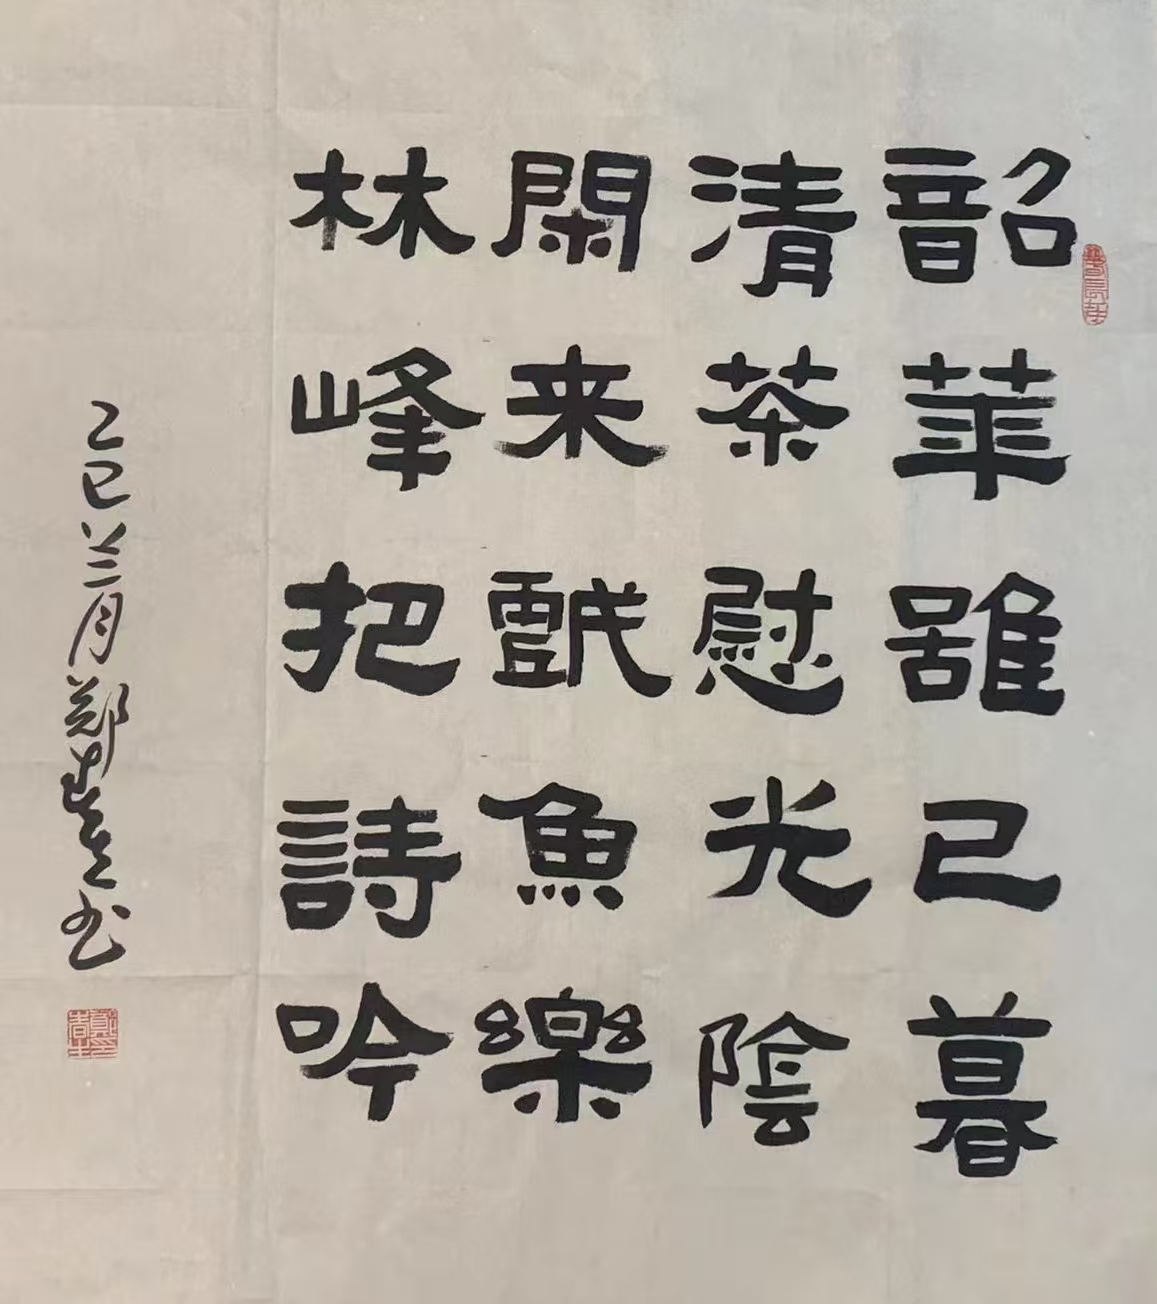 韶華雖已暮
清茶慰光陰
閑来戲魚樂
林峰把詩吟
乙巳 月 郑 书